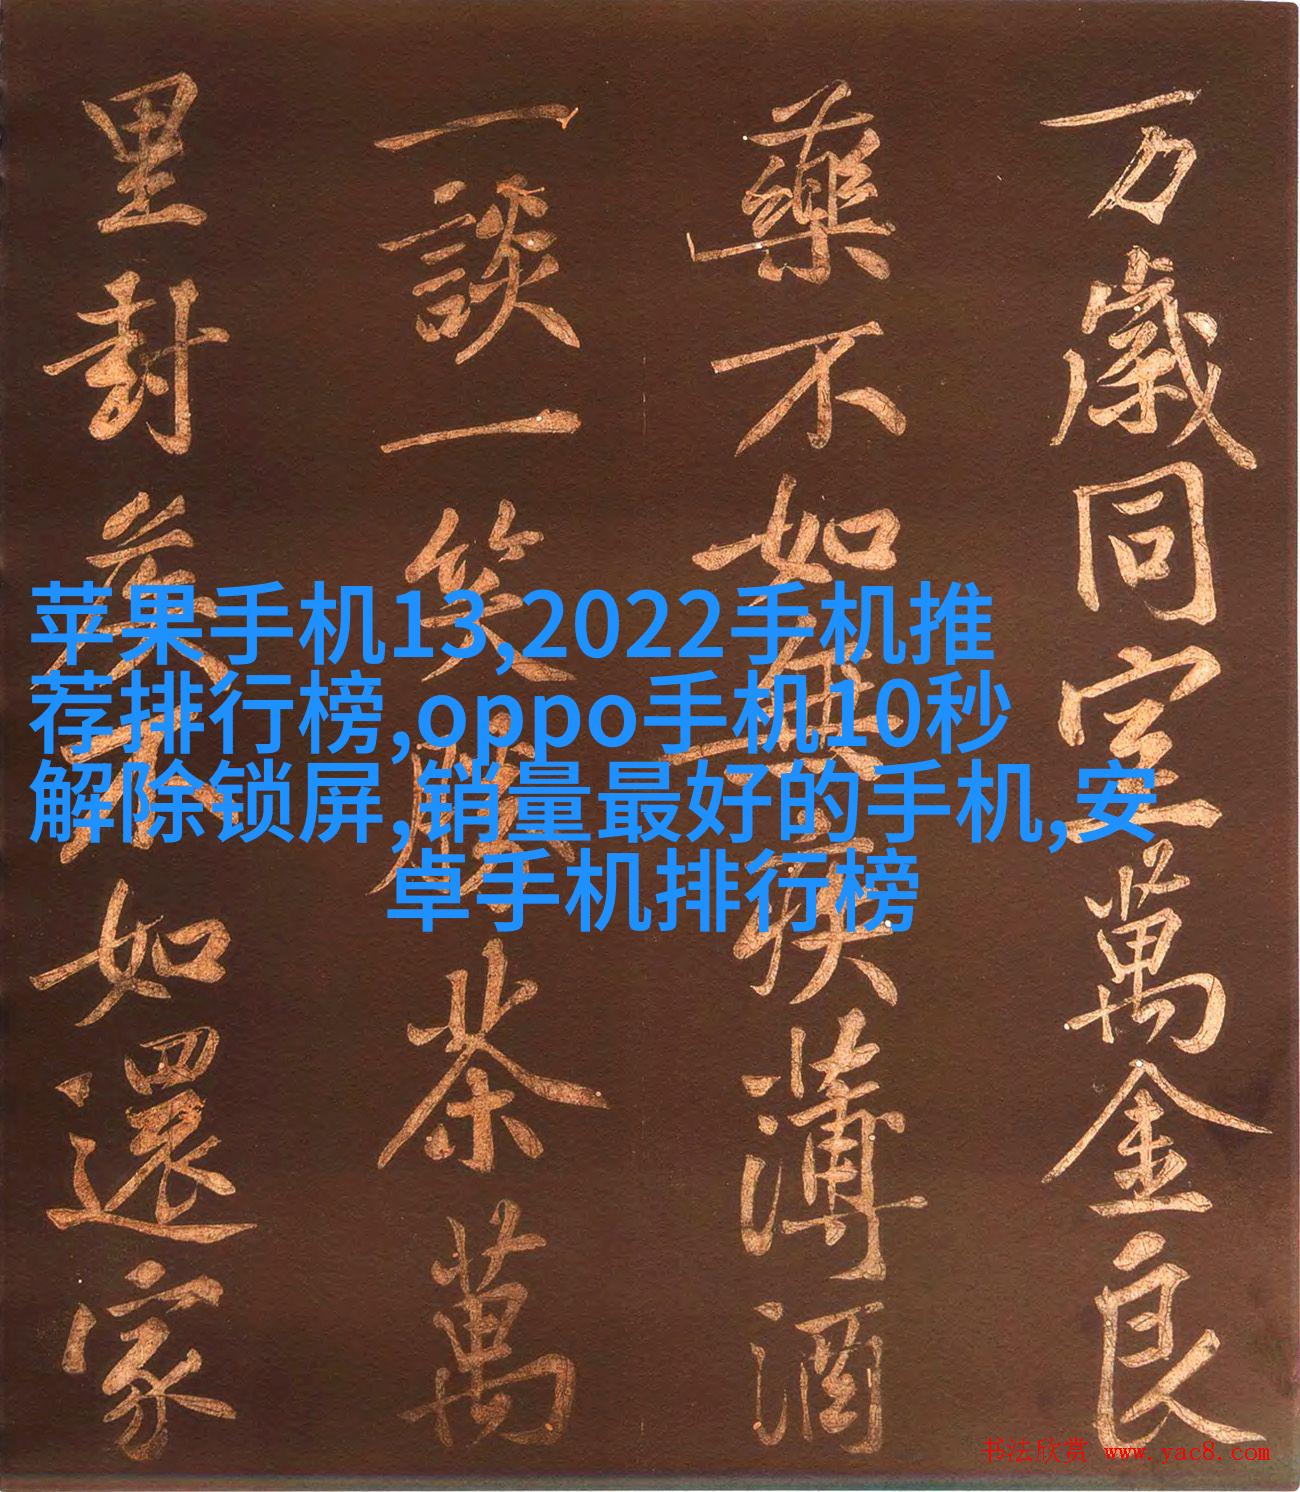 万歲同室萬金良
藥不如無疾薄酒
一談一笑勝茶萬
里封矦不如還家
苹果手机13,2022手机推
荐排行榜,oppo手机10秒
解除锁屏,销量最好的手机,安
卓手机排行榜
书法欣赏 www.yac8.com